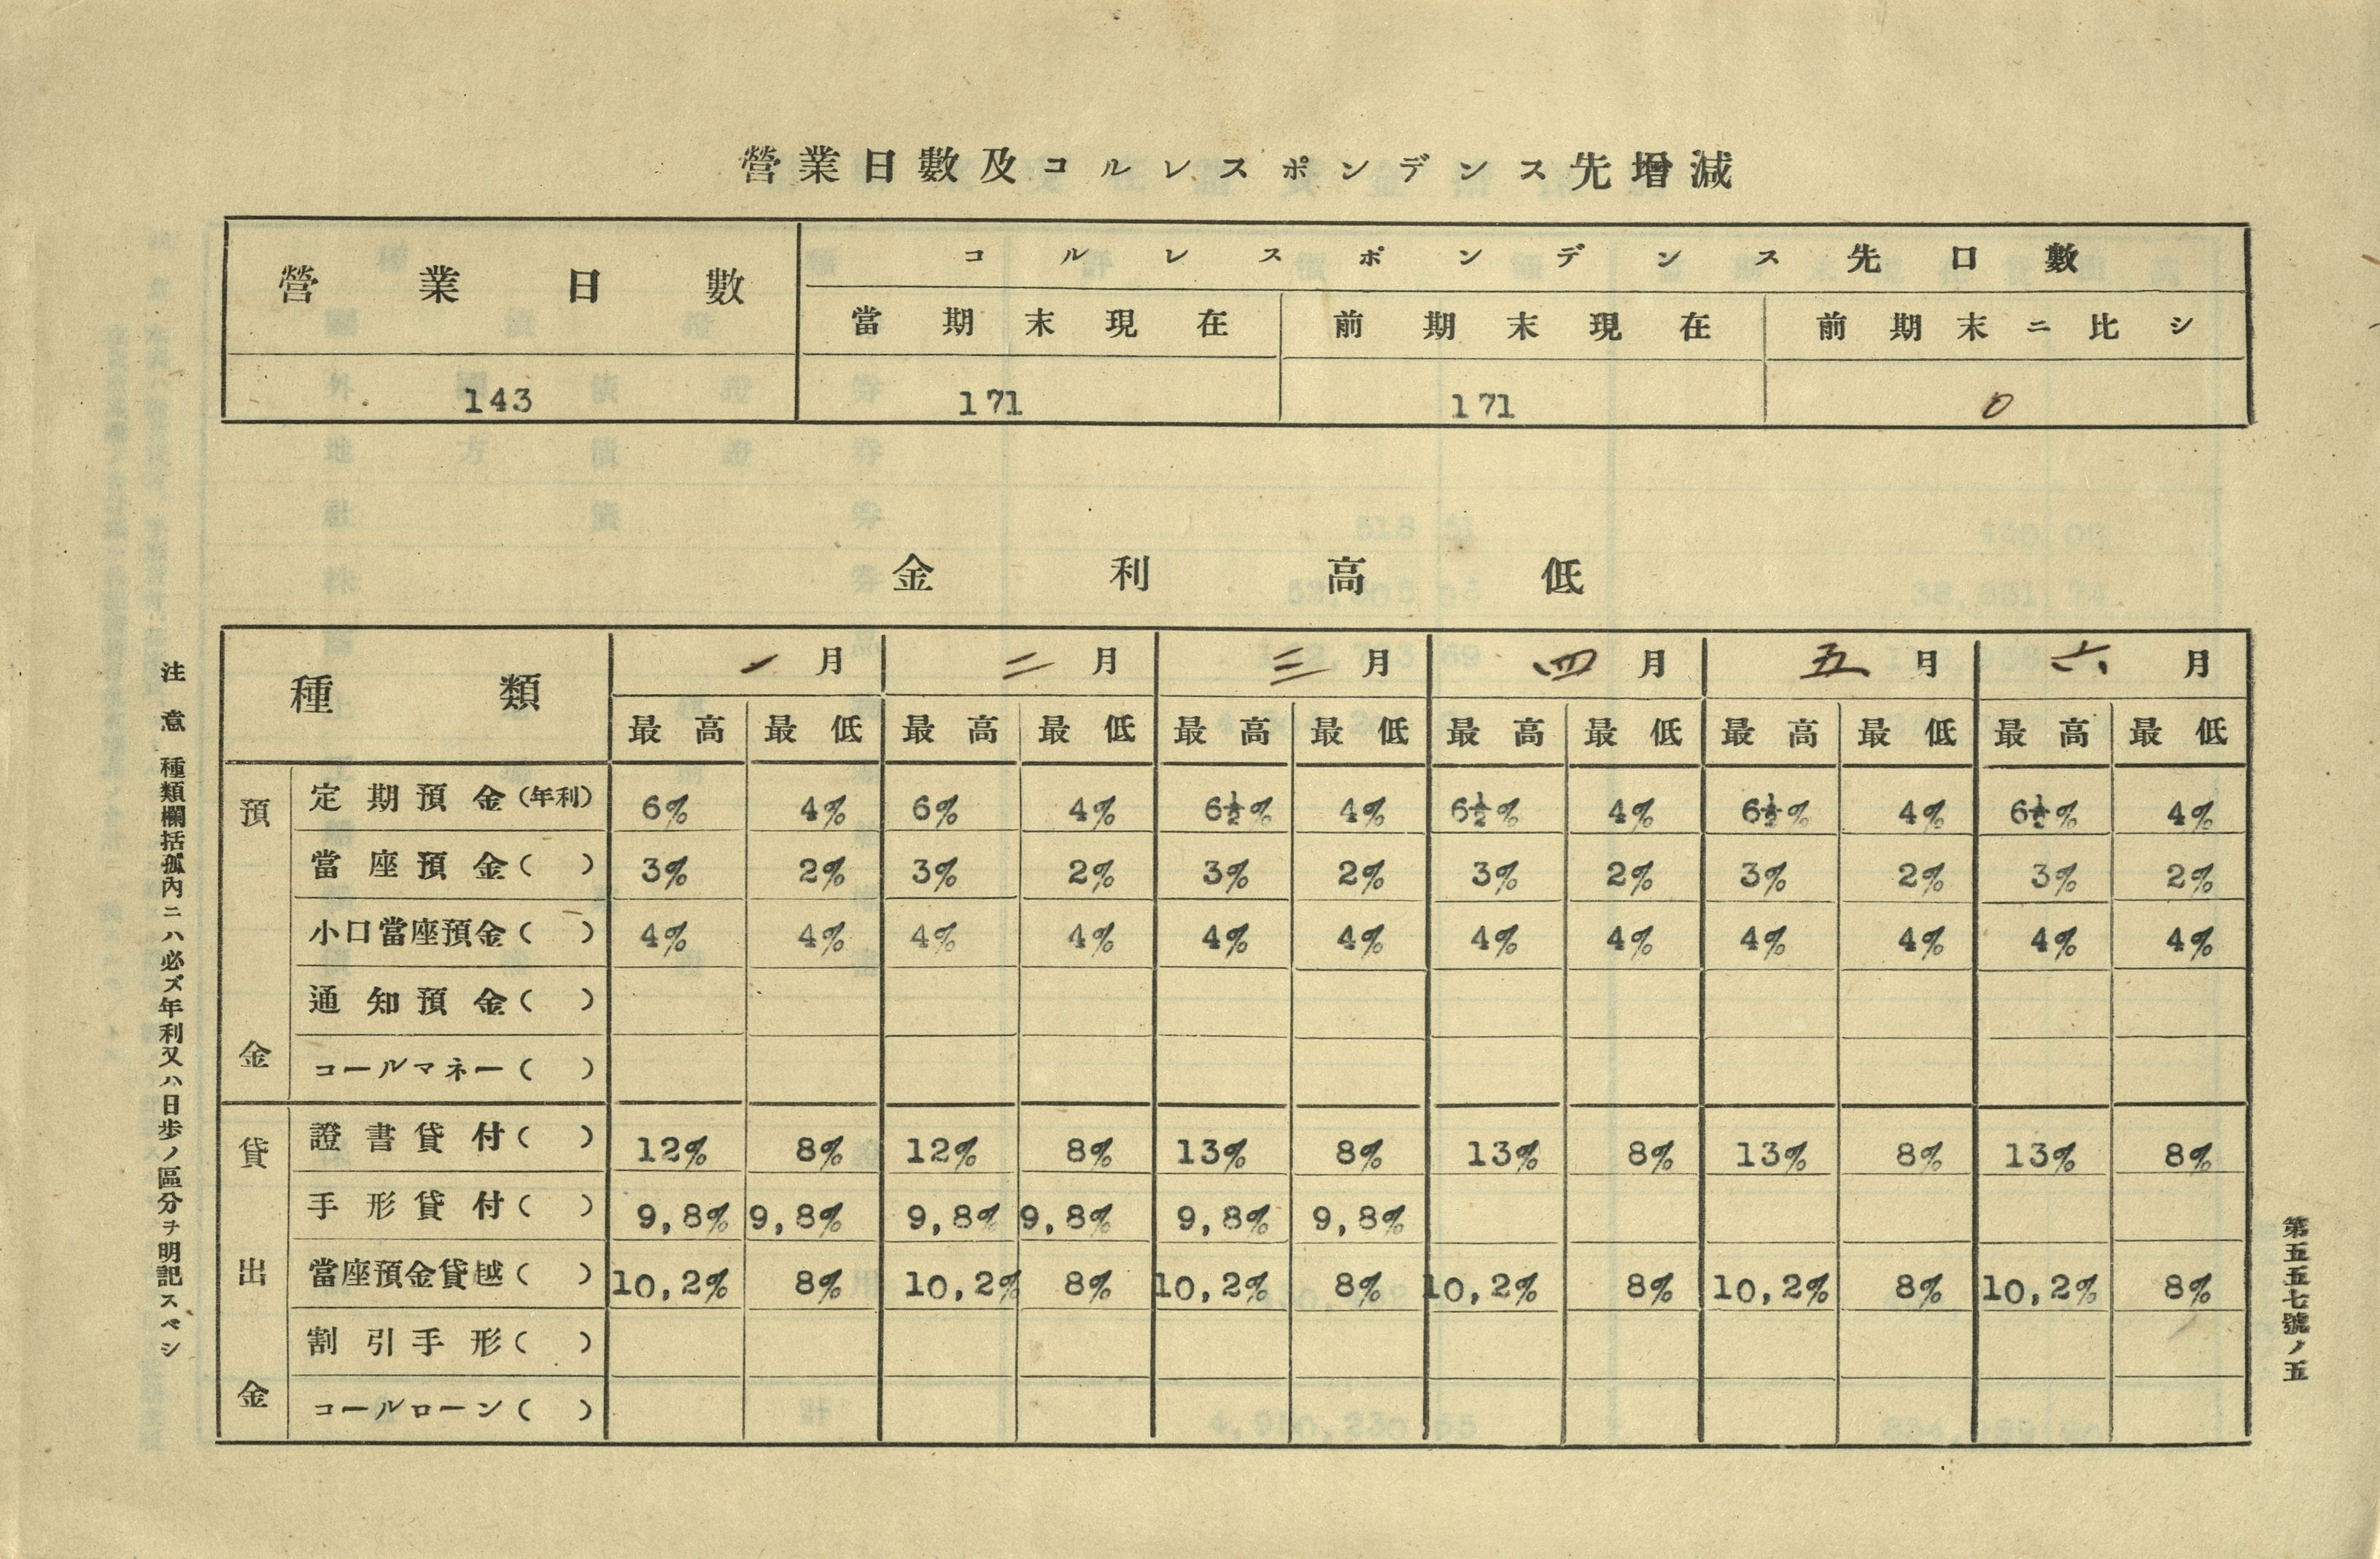 營業日數及コルレスポンデンス先增減
營業日數 コルレスポンデンス先口數
當期末現在 前期末現在 前期末ニ比シ
143 171 171 0
金利高低
種類 一月 二月 三月 四月 五月 六月
最高 最低 最高 最低 最高 最低 最高 最低 最高 最低 最高 最低
預金
定期預金(年利) 6% 4% 6% 4% 6½% 4% 6½% 4% 6½% 4% 6½% 4%
當座預金( ) 3% 2% 3% 2% 3% 2% 3% 2% 3% 2% 3% 2%
小口當座預金( ) 4% 4% 4% 4% 4% 4% 4% 4% 4% 4% 4% 4%
通知預金( )
コールマネー( )
貸出金
證書貸付( ) 12% 8% 12% 8% 13% 8% 13% 8% 13% 8% 13% 8%
手形貸付( ) 9,8% 9,8% 9,8% 9,8% 9,8% 9,8%
當座預金貸越( ) 10,2% 8% 10,2% 8% 10,2% 8% 10,2% 8% 10,2% 8% 10,2% 8%
割引手形( )
コールローン( )
注意 種類欄括孤內ニハ必ズ年利又ハ日步ノ區分ヲ明記スベシ
第五五七號ノ五